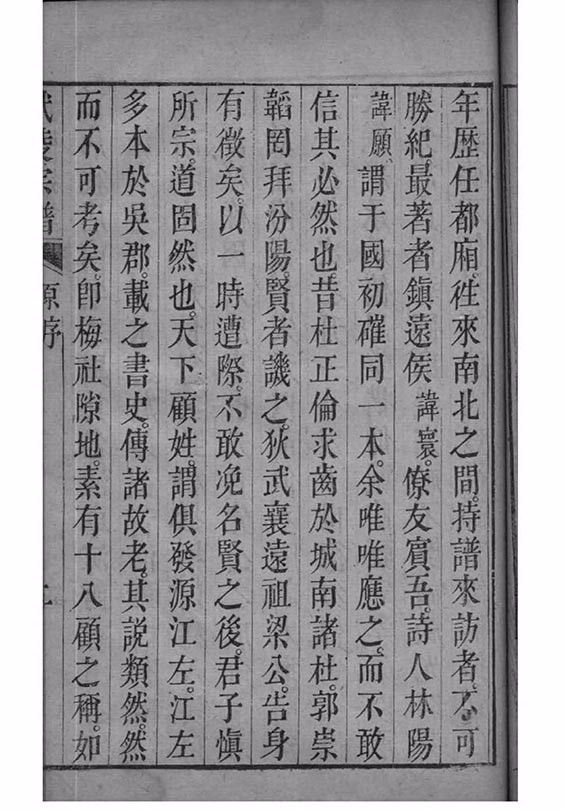 年歷任都廂。徃來南北之間。持譜來訪者。不可
勝紀。最著者鎮遠侯諱寰。僚友賓吾。詩人林陽
諱願。謂于國初確同一本。余唯唯應之。而不敢
信其必然也。昔杜正倫求齒於城南諸杜。郭崇
韜罔拜汾陽。賢者譏之。狄武襄遠祖梁公。告身
有徵矣。以一時遭際。不敢凂名賢之後。君子愼
所宗。道固然也。天下顧姓。謂俱發源江左。江左
多本於吳郡。載之書史。傳諸故老。其說類然。然
而不可考矣。卽梅社隙地。素有十八顧之稱。如
武陵宗譜 原序